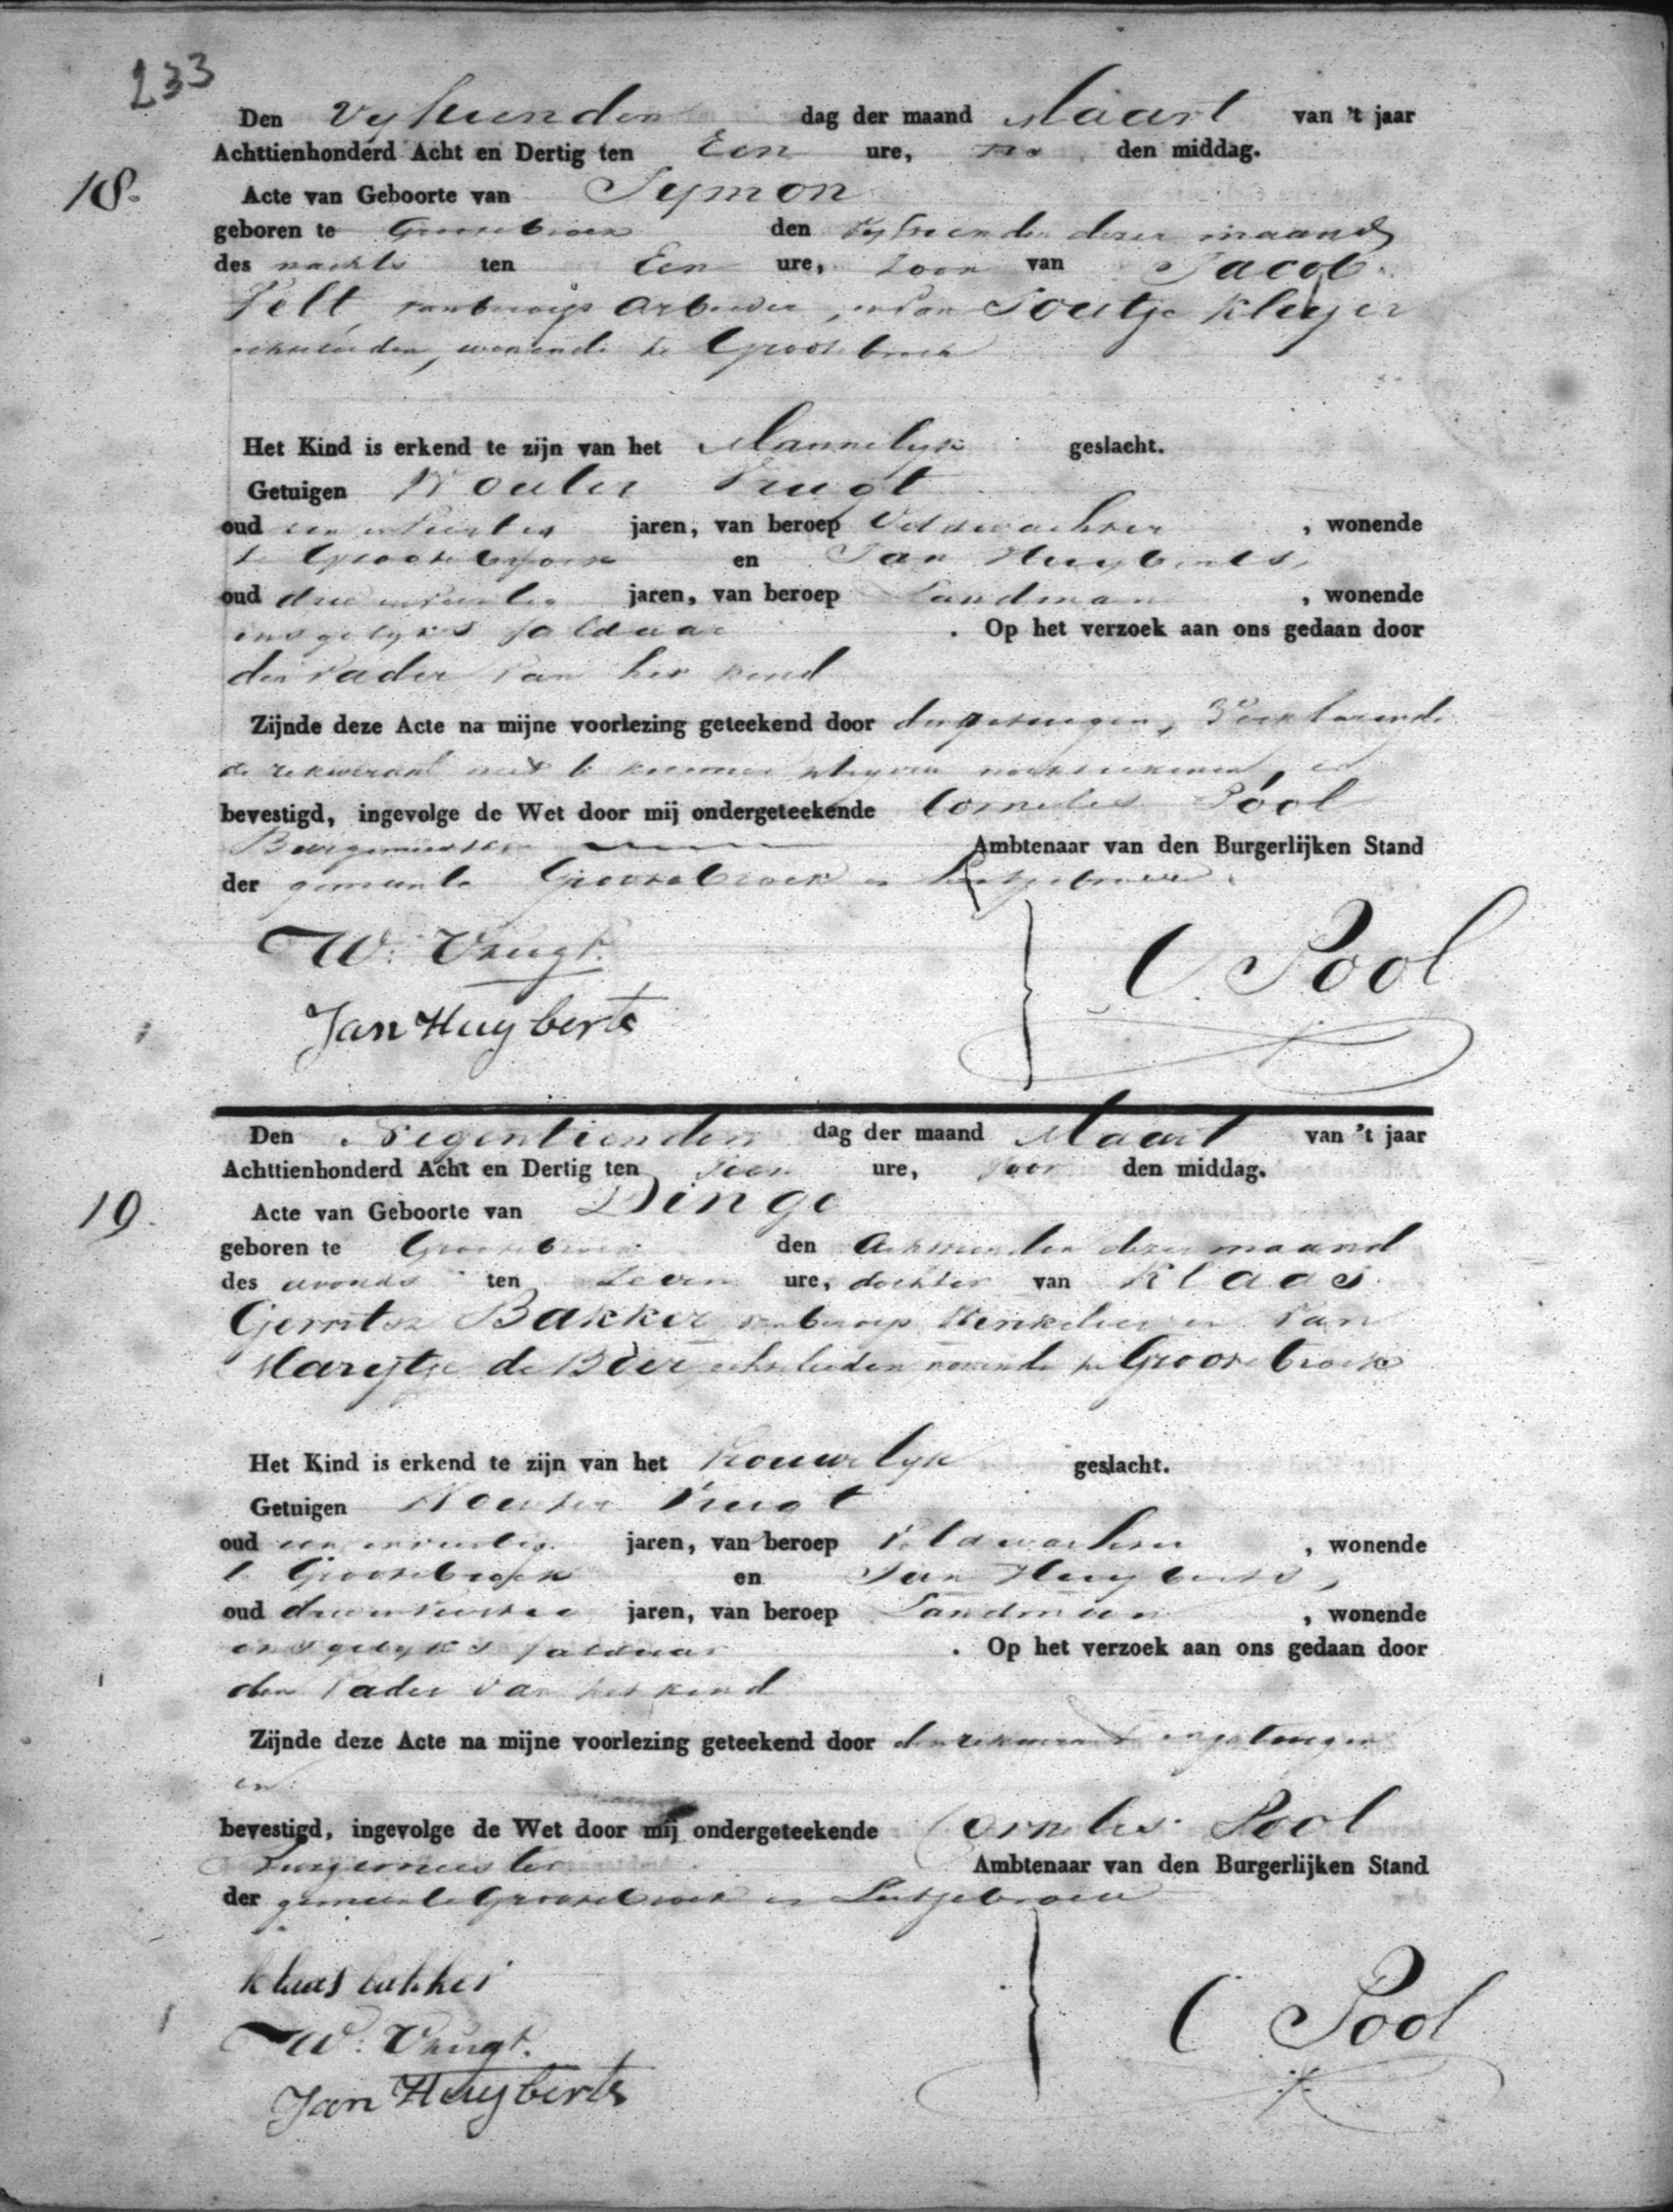 233
Den vyftienden dag der maand Maart van 't jaar
Achttienhonderd Acht en Dertig ten Een ure, na den middag.
18.
Acte van Geboorte van Symon
geboren te Grootebroek den vyftienden dezer maand
des nachts ten Een ure, zoon van Jacob
Velt, van beroep Arbeider, en van Soutje Kleyer
echtelieden, wonende te Grootebroek
Het Kind is erkend te zijn van het Mannelyk geslacht.
Getuigen Wouter Vrugt
oud een en veertig jaren, van beroep Veldwachter, wonende
te Grootebroek en Jan Huyberts,
oud drie en veertig jaren, van beroep Landman, wonende
insgelyks aldaar. Op het verzoek aan ons gedaan door
den Vader van het kind
Zijnde deze Acte na mijne voorlezing geteekend door de getuigen, verklarende
de rekwirant niet te kunnen schryven noch teekenen, en
bevestigd, ingevolge de Wet door mij ondergeteekende Cornelis Pool
Burgemeester Ambtenaar van den Burgerlijken Stand
der gemeente Grootebroek en Lutjebroek.
W. Vrugt.
Jan Huyberts
C. Pool
Den Negentienden dag der maand Maart van 't jaar
Achttienhonderd Acht en Dertig ten Tien ure, voor den middag.
19.
Acte van Geboorte van Dinge
geboren te Grootebroek den Achttienden dezer maand
des avonds ten zeven ure, dochter van Klaas
Gerritsz Bakker van beroep Winkelier en van
Marytje de Boer echtelieden wonende te Grootebroek
Het Kind is erkend te zijn van het Vrouwelyk geslacht.
Getuigen Wouter Vrugt
oud een en veertig jaren, van beroep Veldwachter, wonende
te Grootebroek en Jan Huyberts,
oud drie en veertig jaren, van beroep Landman, wonende
insgelyks aldaar. Op het verzoek aan ons gedaan door
den Vader van het kind
Zijnde deze Acte na mijne voorlezing geteekend door den rekwirant en getuigen
en
bevestigd, ingevolge de Wet door mij ondergeteekende Cornelis Pool
Burgemeester Ambtenaar van den Burgerlijken Stand
der gemeente Grootebroek en Lutjebroek
klaas bakker
W. Vrugt.
Jan Huyberts
C Pool